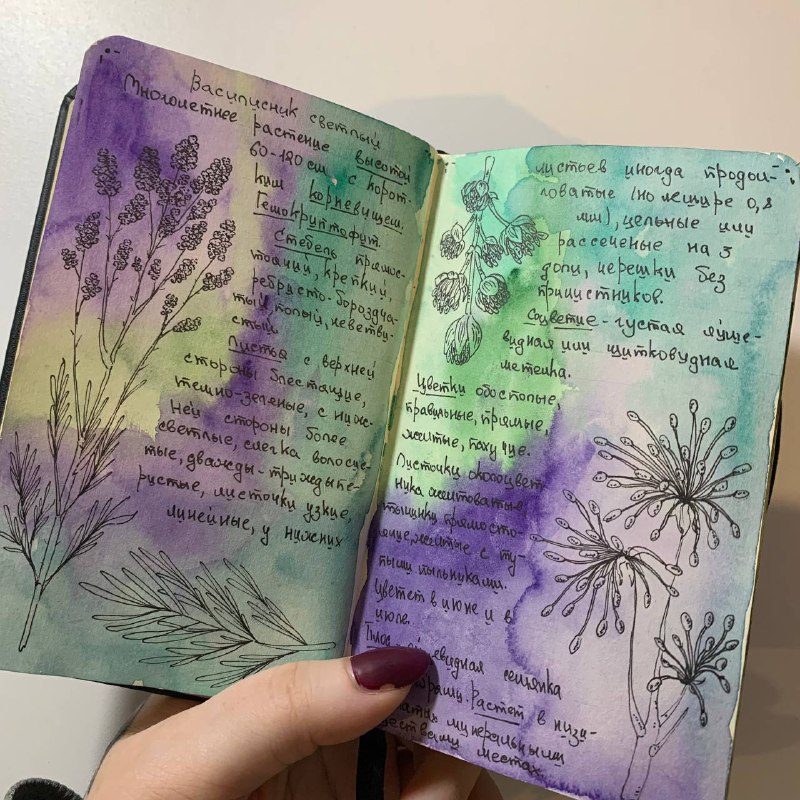 Василисник светлый
Многолетнее растение высотой
60-120 см с корот-
ким корневищем.
Гемокриптофит.
Стебель прямос-
тоячий, крепкий,
ребристо-бороздча-
тый, полый, неветви-
стый.
Листья с верхней
стороны блестящие,
темно-зеленые, с ниж-
ней стороны более
светлые, слегка волосис-
тые, дважды-триждыпе-
ристые, листочки узкие,
линейные, у нижних
листьев иногда продол-
говатые (но шире 0,8
мм), цельные или
рассеченые на 3
доли, черешки без
прилистников.
Соцветие - густая яйце-
видная или щитковудная
метелка.
Цветки обостолые,
правильные, прямые,
желтые, пахучие.
Листочки околоцвет
ника желтоватые
тычинки прямосто-
ячие, желтые с ту-
пыми пыльниками.
Цветет в июне и в
июле.
Плод яйцевидная семянка
Растет в низи-
минеральными
веществами местах.